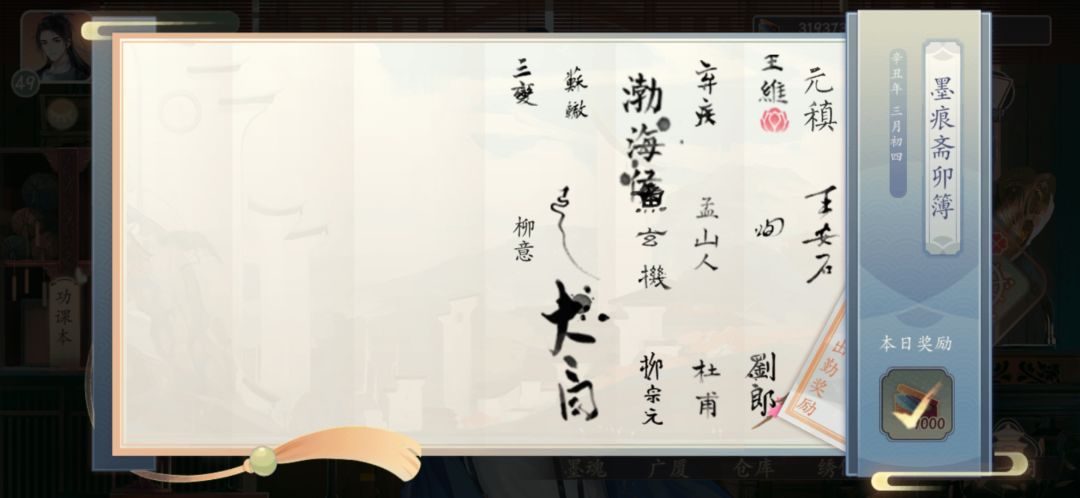 墨痕斋卯簿
辛丑年 三月初四
本日奖励
出勤奖励
元稹
王安石
王維
劉郎
辛疾
孟山人
杜甫
渤海
魚玄機
柳宗元
蘇轍
三變
柳意
功课本
49
墨魂
广厦
仓库